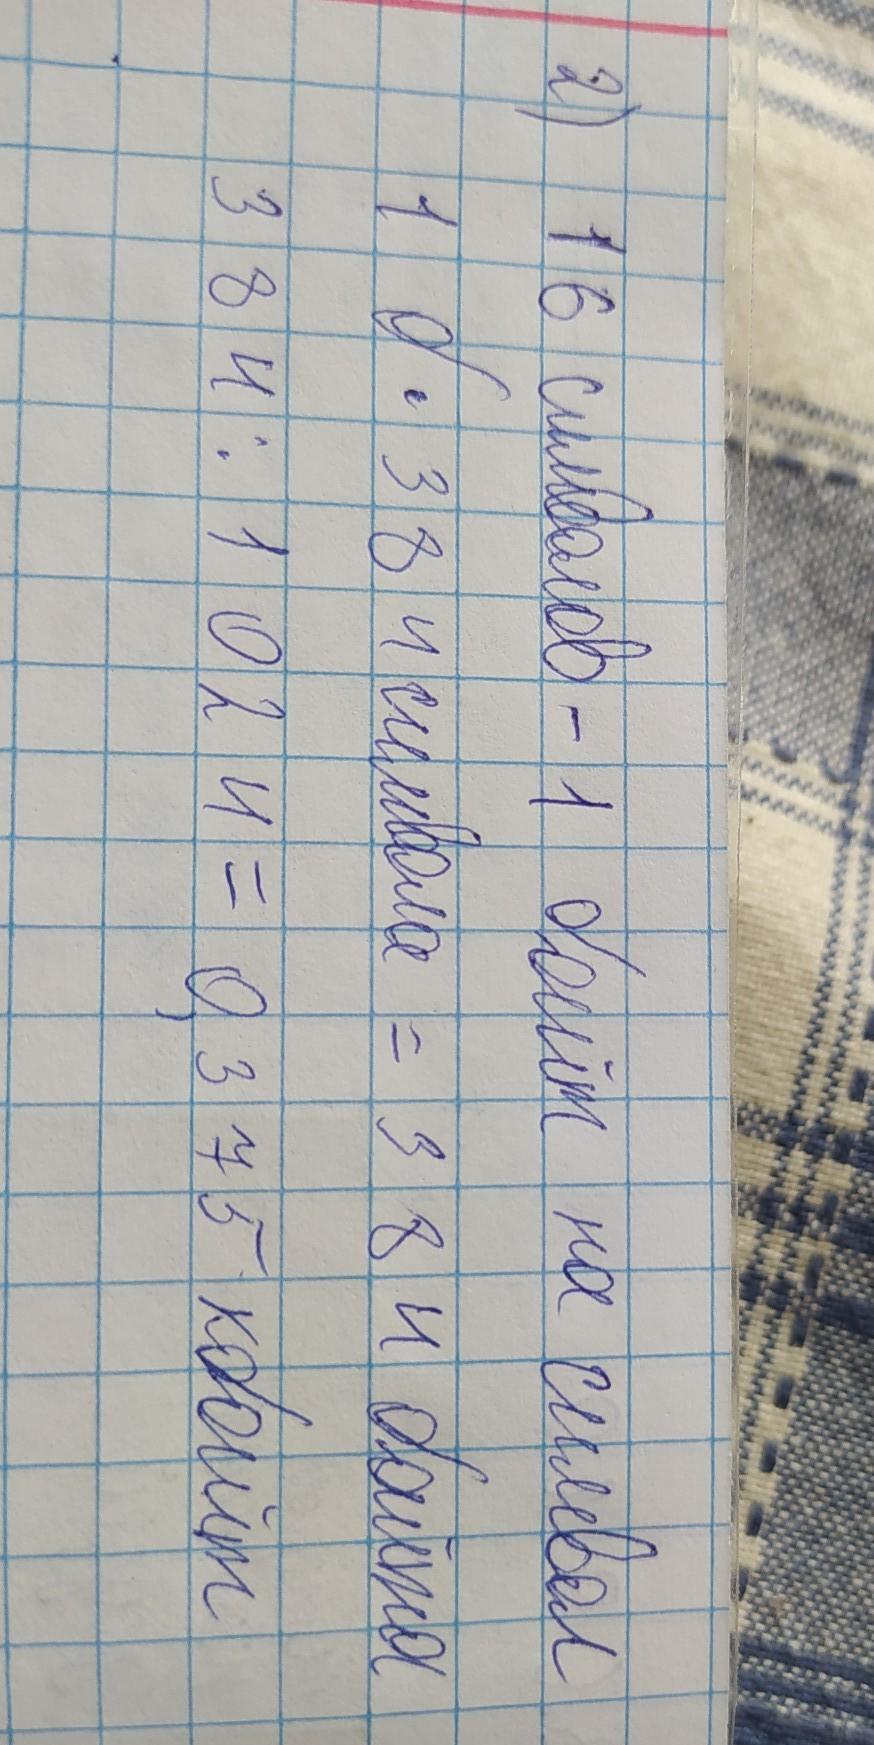 2) 16 символов - 1 байт на символ
1 б · 384 символа = 384 байта
384 : 1024 = 0,375 кбайт